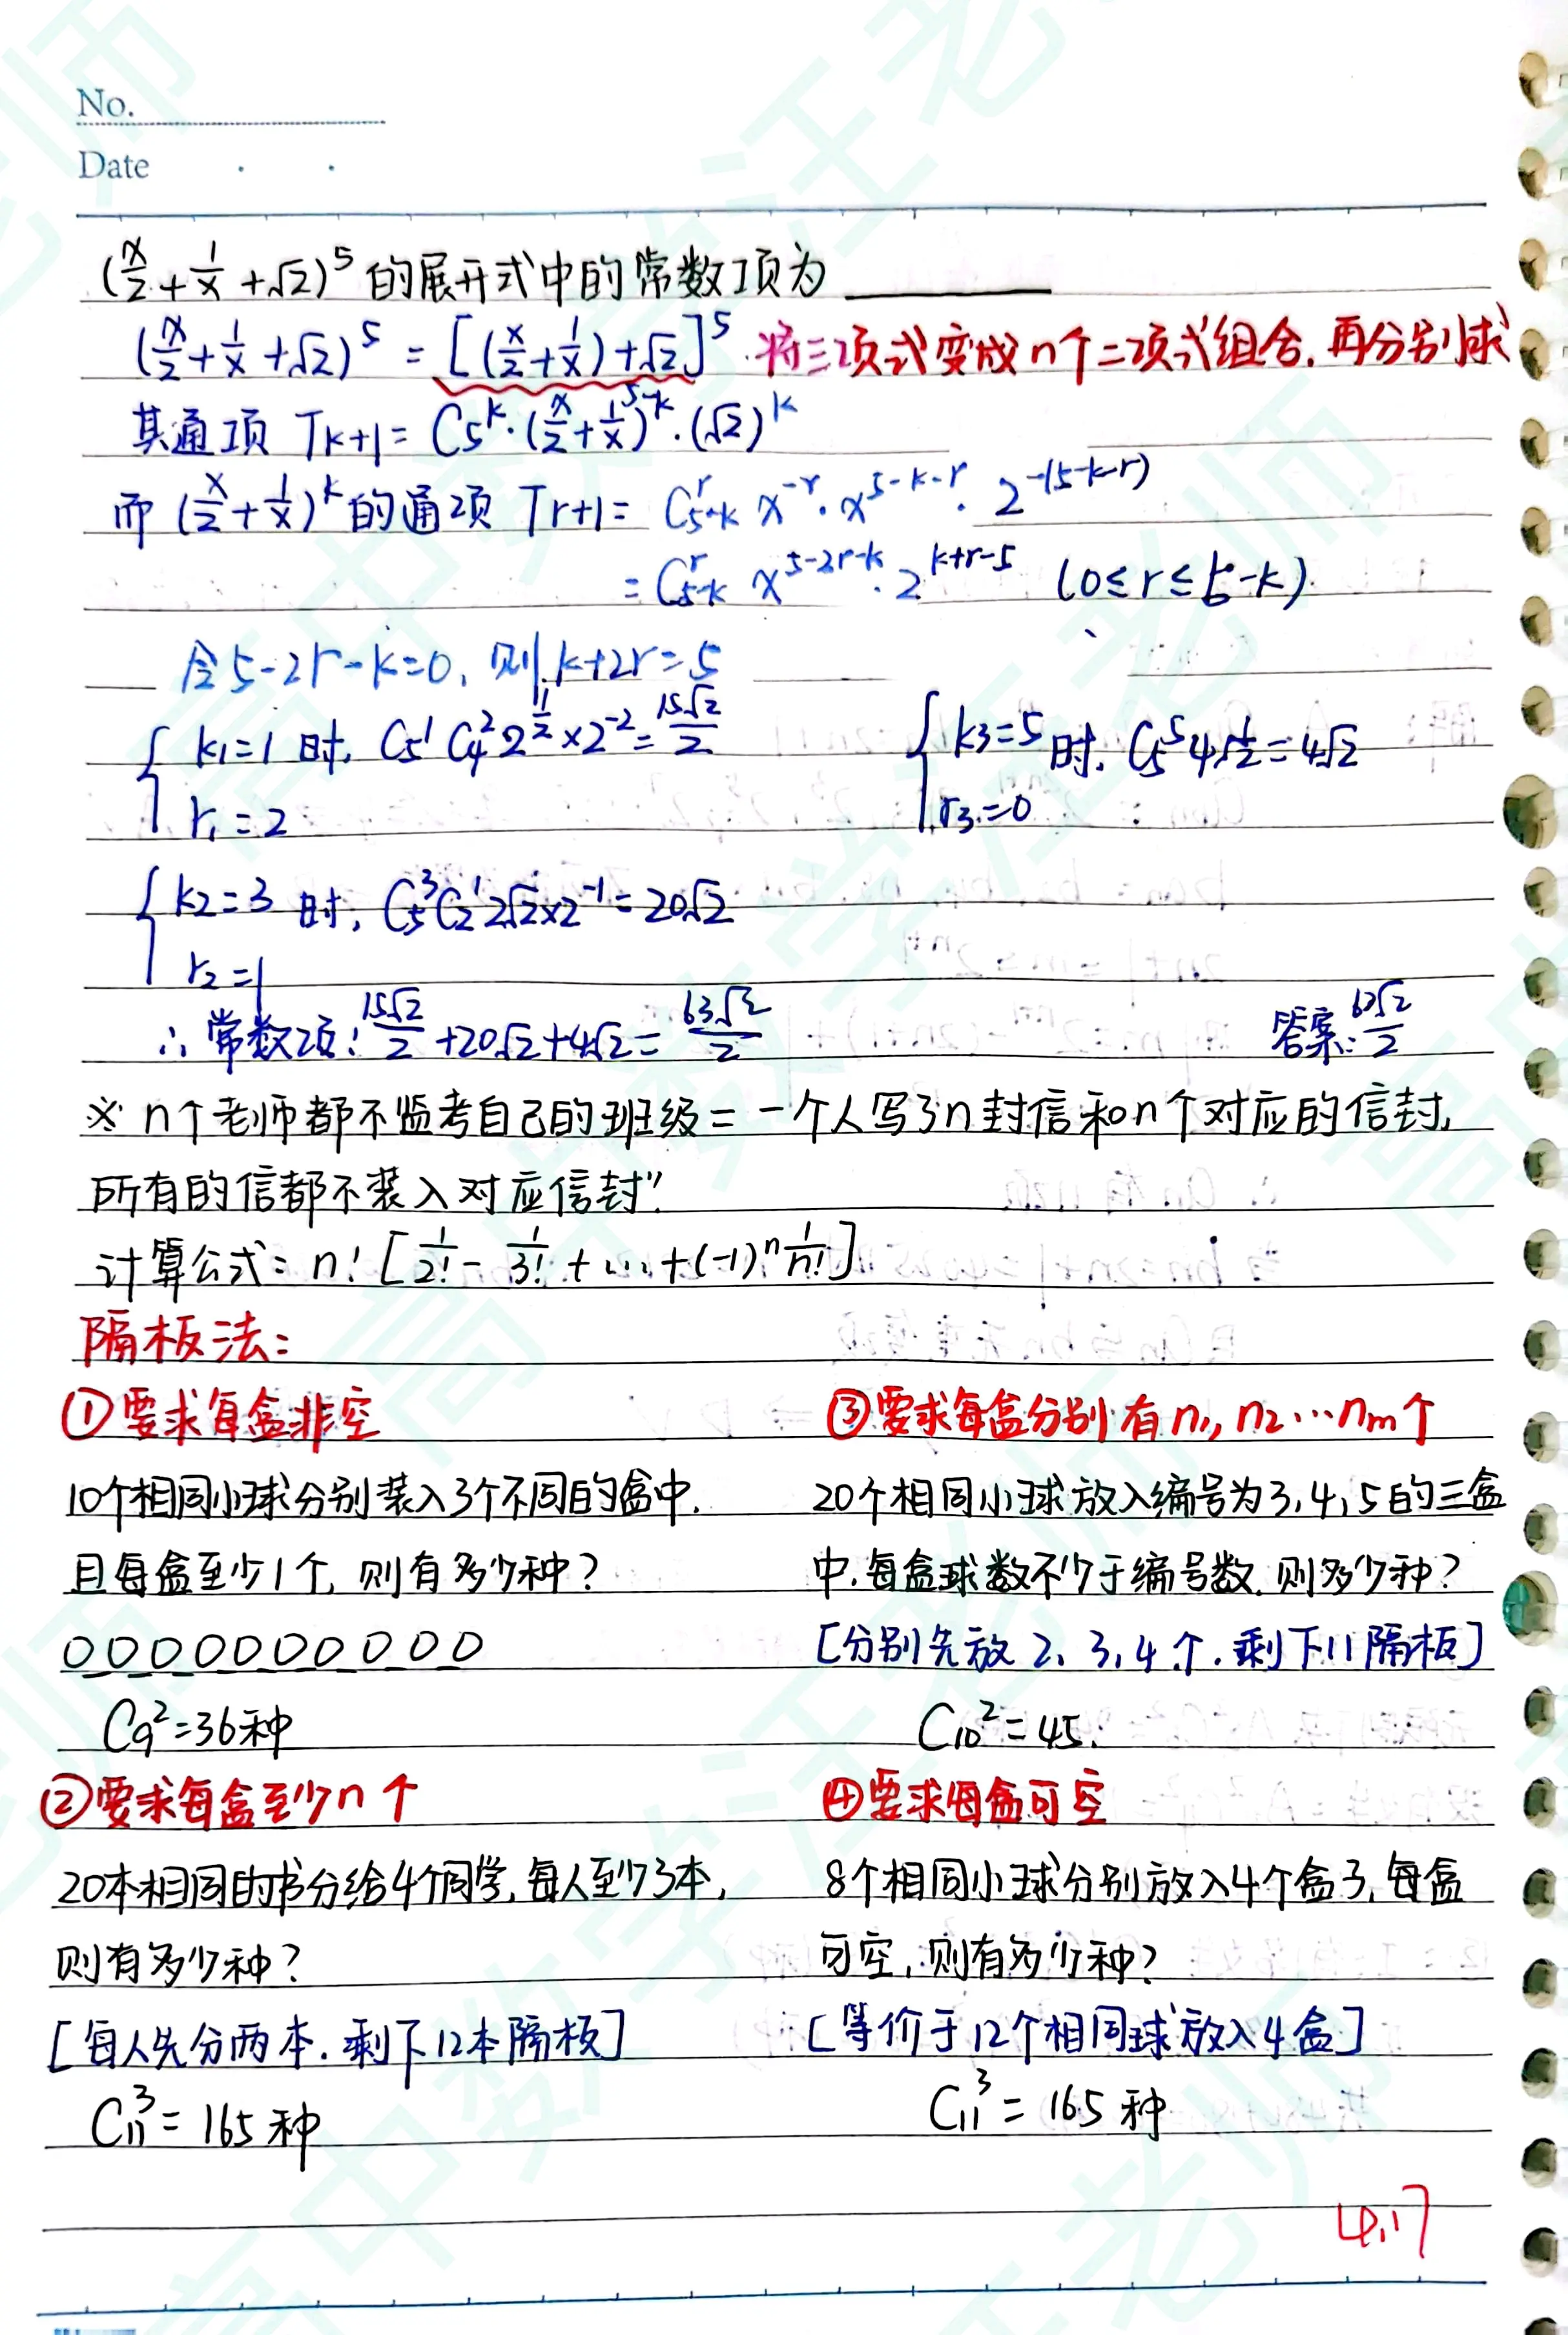 No.
Date
(x/2 + 1/x + √2)^5 的展开式中的常数项为 ______
(x/2 + 1/x + √2)^5 = [(x/2 + 1/x) + √2]^5 将三项式变成n个二项式组合,再分别求
其通项 T_{k+1} = C_5^k · (x/2 + 1/x)^{5-k} · (√2)^k
而 (x/2 + 1/x)^k 的通项 T_{r+1} = C_{5-k}^r x^{-r} · x^{5-k-r} · 2^{-(5-k-r)}
= C_{5-k}^r x^{5-2r-k} · 2^{k+r-5} (0≤r≤5-k)
令5-2r-k=0, 则k+2r=5
{ k1=1 时, C_5^1 C_4^2 2^{1/2} × 2^{-2} = 15√2/2
r1=2
{ k3=5 时, C_5^5 4√2 = 4√2
r3=0
{ k2=3 时, C_5^3 C_2^1 2√2×2^{-1} = 20√2
r2=1
∴ 常数项: 15√2/2 + 20√2 + 4√2 = 63√2/2 答案: 63√2/2
※ n个老师都不监考自己的班级 = 一个人写了n封信和n个对应的信封,
所有的信都不装入对应信封"
计算公式: n! [1/2! - 1/3! + ... + (-1)^n 1/n!]
隔板法:
①要求每盒非空
10个相同小球分别装入3个不同的盒中,
且每盒至少1个, 则有多少种?
0000000000
C_9^2=36种
②要求每盒至少n个
20本相同的书分给4个同学, 每人至少3本,
则有多少种?
[每人先分两本. 剩下12本隔板]
C_11^3 = 165种
③要求每盒分别有n1, n2…nm个
20个相同小球放入编号为3,4,5的三盒
中, 每盒球数不少于编号数, 则多少种?
[分别先放 2、3,4个. 剩下11隔板]
C_10^2=45.
④要求每盒可空
8个相同小球分别放入4个盒子, 每盒
可空, 则有多少种?
[等价于12个相同球放入4盒]
C_11^3 = 165种
4.17
高中数学汪老师